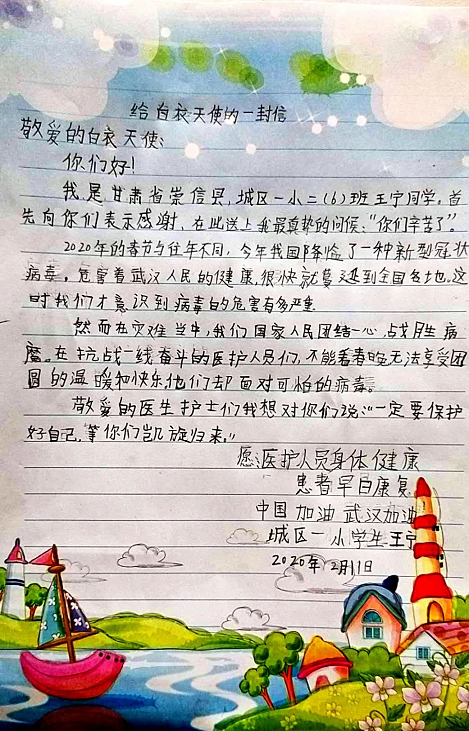 给白衣天使的一封信
敬爱的白衣天使:
你们好!
我是甘肃省崇信县,城区一小二(6)班王宁同学。首
先向你们表示感谢,在此送上我最真挚的问候:“你们辛苦了”。
2020年的春节与往年不同,今年我国降临了一种新型冠状
病毒。危害着武汉人民的健康,很快就蔓延到全国各地。这
时我们才意识到病毒的危害有多严重
然而在灾难当中,我们国家人民团结一心,战胜病
魔。在抗战一线奋斗的医护人员们,不能看春晚无法享受团
圆的温暖和快乐,他们去面对可怕的病毒。
敬爱的医生护士们我想对你们说:“一定要保护
好自己,等你们凯旋归来。”
愿:医护人员身体健康
患者早日康复
中国加油 武汉加油
城区一小学生王宁
2020年2月11日